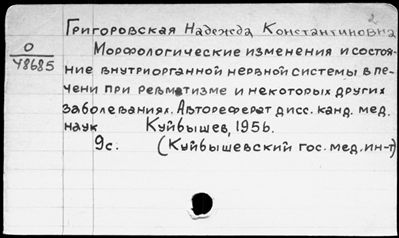 2
Григоровская Надежда Константиновна
О
48685
Морфологические изменения и состоя-
ние внутриорганной нервной системы в пе-
чени при ревматизме и некоторых других
заболеваниях. Автореферат дисс. канд. мед.
наук Куйбышев, 1956.
9с. (Куйбышевский гос. мед. ин-т)